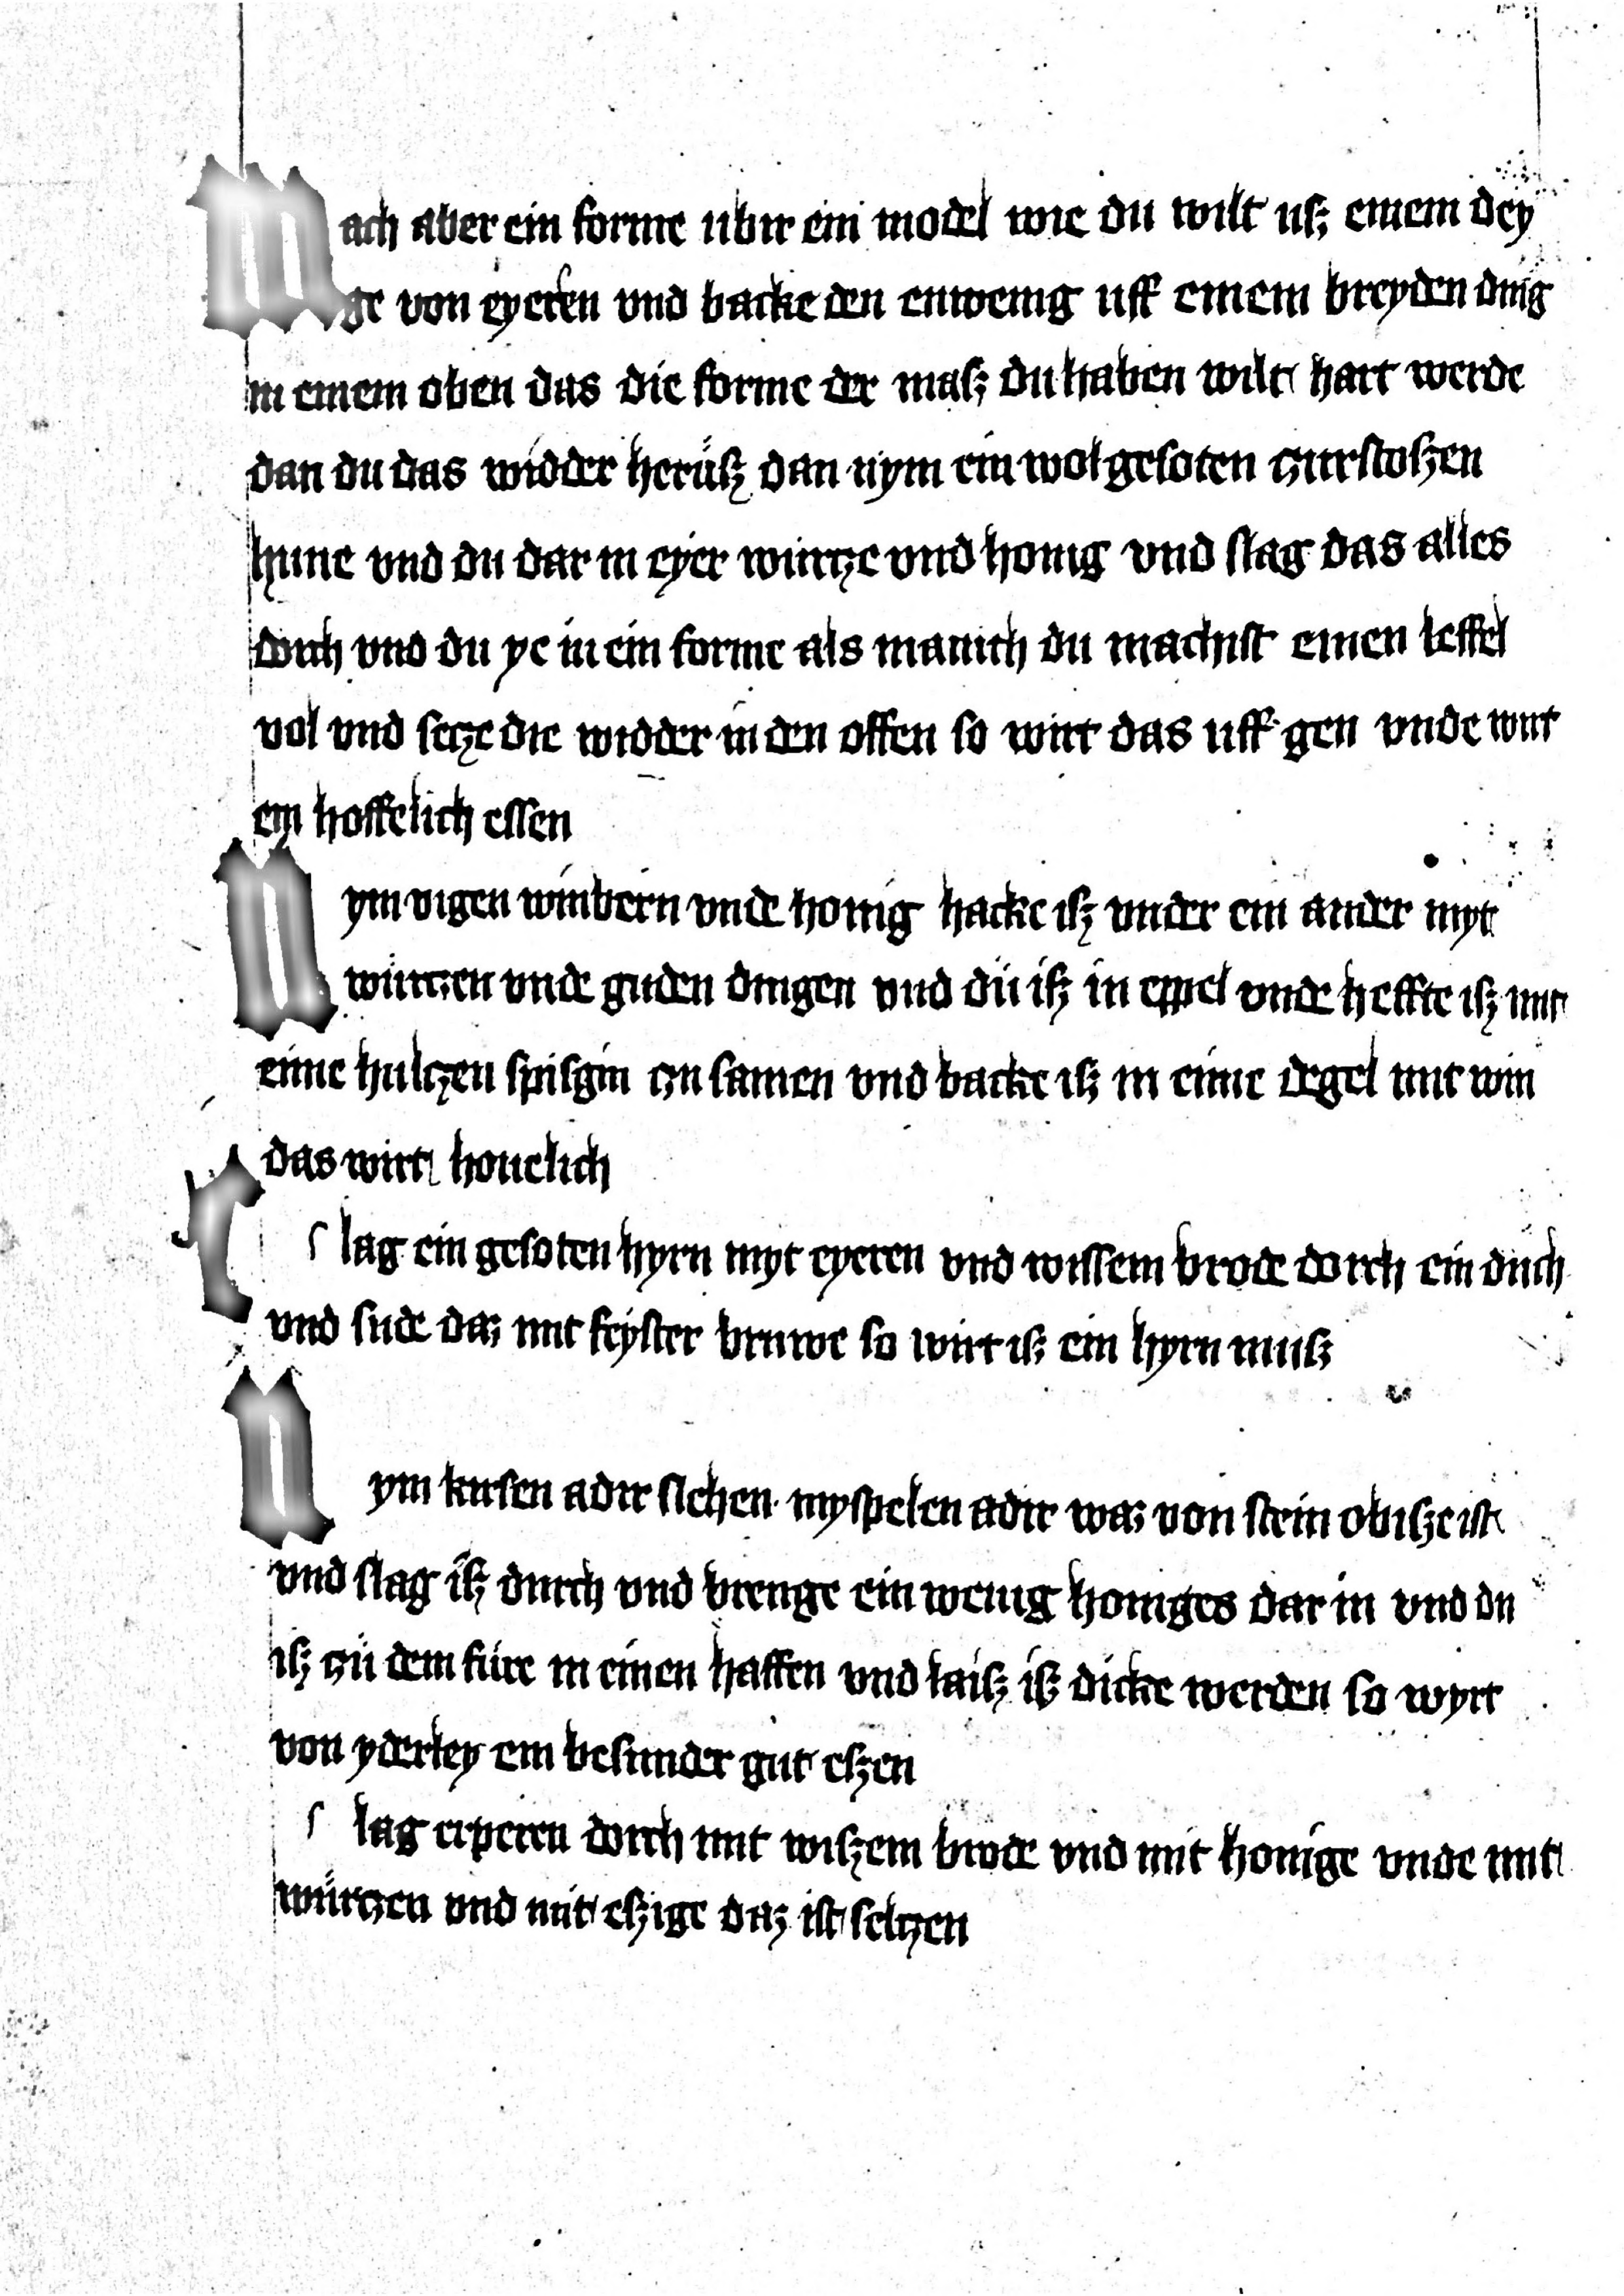 Mach aber ein forme ubir ein model wie du wilt uſz einem dey
ge von eyeren vnd backe den enwenig uff einem breyden ding
in einem oben das die forme der maſz du haben wilt hart werde
dan du das widder heruſz dan nym ein wol geſoten zurſtoſzen
hune vnd du dar in eyer wurtze vnd honig vnd ſlag das alles
dorch vnd du ye in ein forme als manich du machiſt einen leffel
vol vnd ſetze die widder in den offen ſo wirt das uff gen vnde wirt
ein hoffelich eſſen
Nym vigen winbern vnde honig hacke iſz vnder ein ander myt
wurtzen vnde guden dingen vnd dü iſz in eppel vnde heffte iſz mit
eime hultzen ſpiſgin zu ſamen vnd backe iſz in eime degel mit win
das wirt houelich
Slag ein geſoten hyrn myt eyeren vnd wiſſem brode dorch ein duch
vnd ſude daz mit feyſter bruwe ſo wirt iſz ein hyrn muſz
Nym kirſen adir ſlehen myſpelen adir waz von ſtein obiſze iſt
vnd ſlag iſz durch vnd brenge ein wenig honiges dar in vnd du
iſz zü dem füre in einen haffen vnd laiſz iſz dicke werden ſo wyrt
von yderley ein beſunder gut eſzen
Slag erperen dorch mit wiſzem brode vnd mit honige vnde mit
würtzen vnd mit eſzige daz iſt ſeltzen